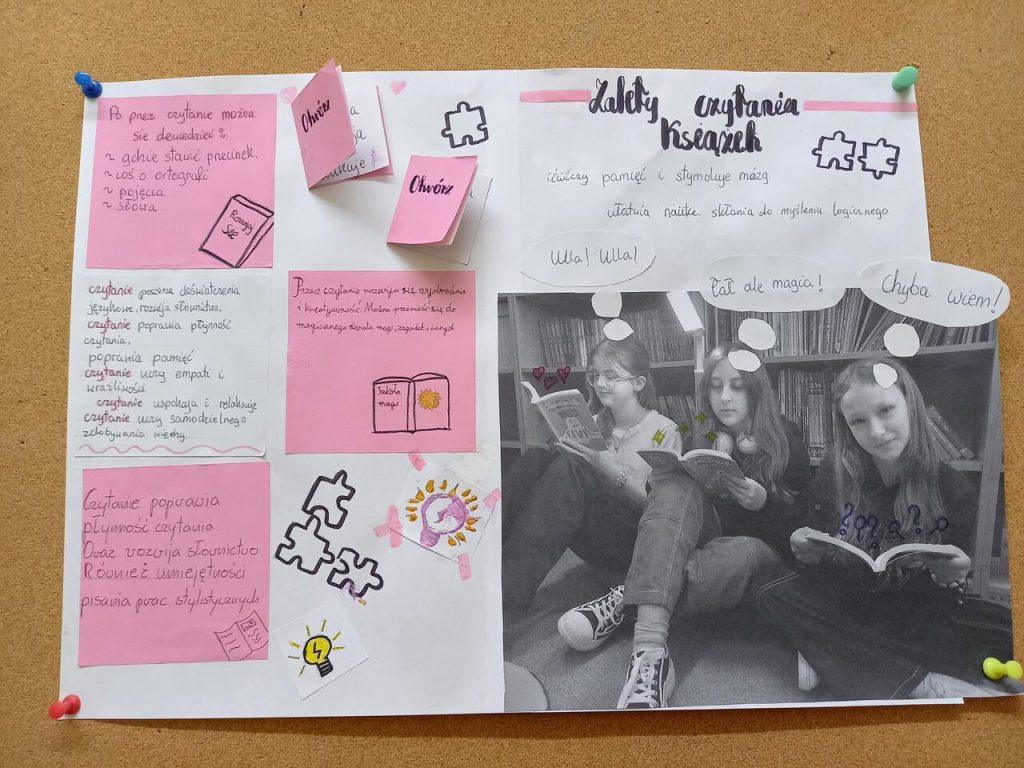 Po przez czytanie można
się dowiedzieć:
~ gdzie stawić przecinek.
~ coś o ortografi
~ pojęcia
~ słowa
Rozwijaj
Się
Otwórz
Otwórz
Zalety czytania
Książek
ićwiczy pamięć i stymuluje mózg
ułatwia naukę. skłania do myślenia logicznego
czytanie poszerza doświatczenia
językowe, rozwija słownictwo.
czytanie poprawia płynność
czytania.
poprawia pamięć
czytanie uczy empati i
wrażliwości
czytanie uspokaja i relaksuje
czytanie uczy samodzielnego
zdobywania wiedzy
Przez czytanie rozwija się wyobraźnia
i kreatywność. Można przenieść się do
magicznego świata magi, zagadek, innych
Szkoła
magi
Czytanie poprawia
płynność czytania
Oraz rozwija słownictwo
Również umiejętności
pisania prac stylistycznych
Ulla! Ulla!
Łał ale magia!
Chyba wiem!